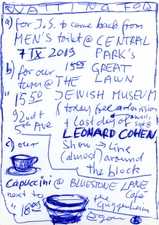 WAITING FOR
a) for J.S. to come back from
MEN'S toilet @ CENTRAL
7 IX 2019 PARK'S
b) for our 15 05 GREAT
turn @ THE LAWN
15 50 JEWISH MUSEUM
92nd + today free admission
5th Ave + last day of
LEONARD COHEN
c) our show → line
(almost) around
the block
Capuccini @ BLUESTONE LANE
next to Café
@ 18 05 the Guggenheim